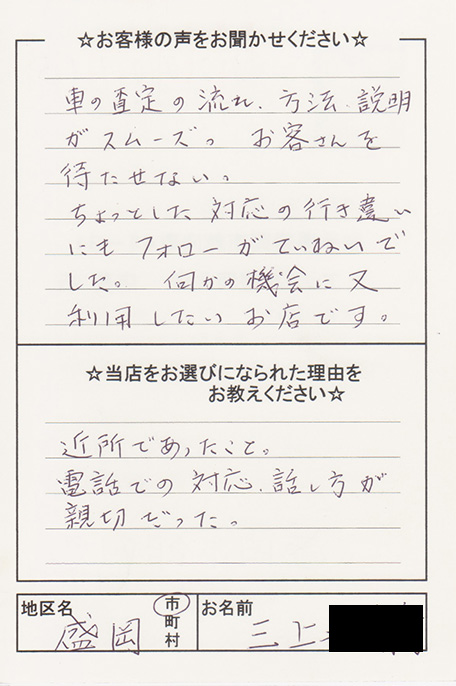 ☆お客様の声をお聞かせください☆
車の査定の流れ、方法、説明
がスムーズっ お客さんを
待たせない。
ちょっとした対応の行き違い
にもフォローがていねいで
した。 何かの機会に又
利用したいお店です。
☆当店をお選びになられた理由を
お教えください☆
近所であったこと。
電話での対応、話し方が
親切だった。
地区名 盛岡 市 町 村 お名前 三上